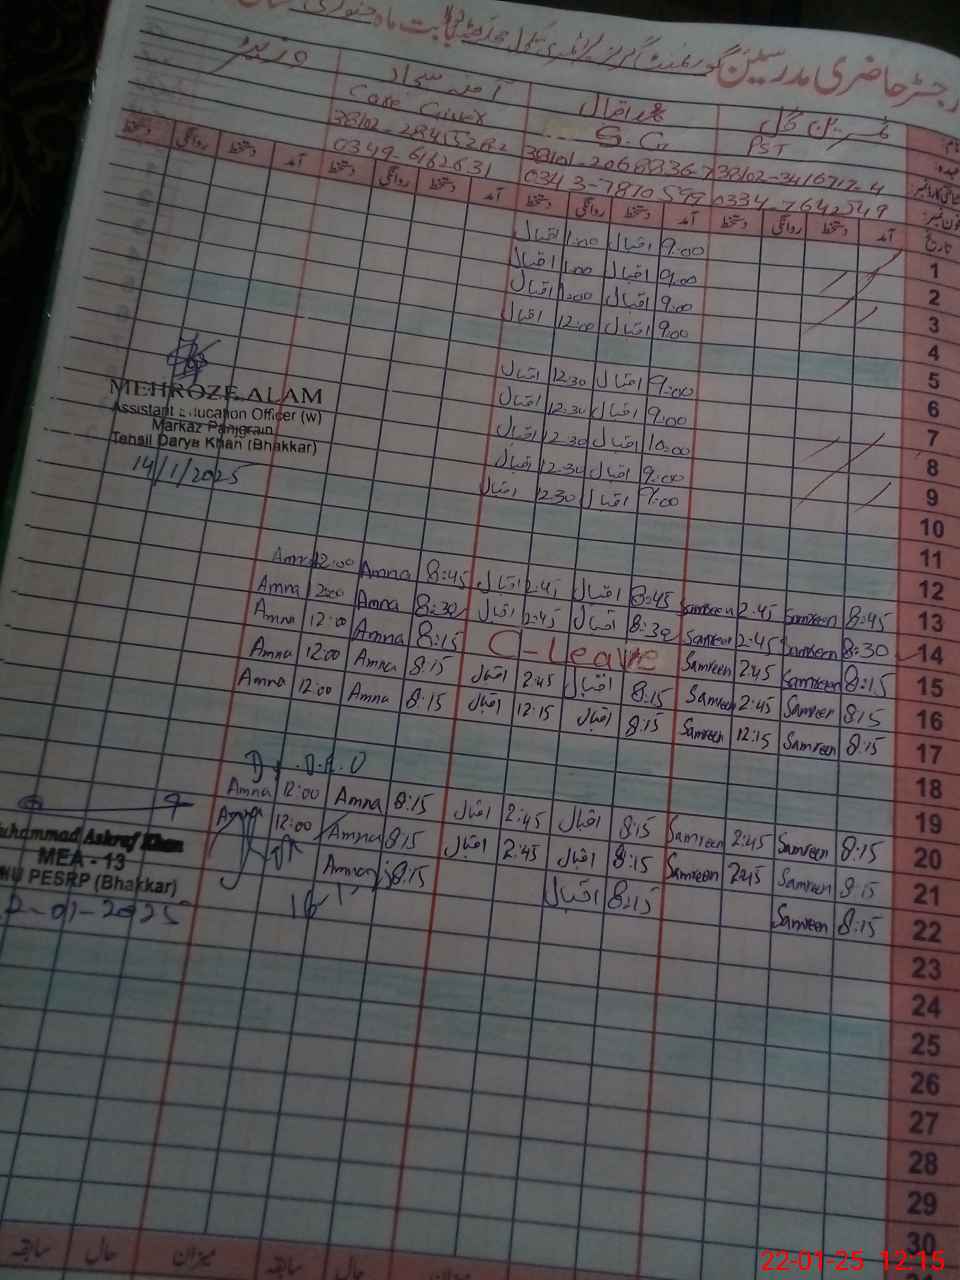 رجسٹر حاضری مدرسین گورنمنٹ گرلز پرائمری سکول بابت ماہ جنوری
ثمرین گل اقبال آمنہ سجاد
PST S.G Care Giver
38102-3416717-4 38101-2068836-7 38102-2845526-2
0334-7642549 0343-7870599 0349-6162631
تاریخ آمد دستخط روانگی دستخط آمد دستخط روانگی دستخط آمد دستخط روانگی دستخط آمد دستخط روانگی دستخط
1 9:00 اقبال 1:00 اقبال
2 9:00 اقبال 1:00 اقبال
3 9:00 اقبال 1:00 اقبال
4 9:00 اقبال 12:00 اقبال
5
6 9:00 اقبال 12:30 اقبال
7 9:00 اقبال 12:30 اقبال
8 10:00 اقبال 12:30 اقبال
9 9:00 اقبال 12:30 اقبال
10 9:00 اقبال 12:30 اقبال
11
12
MEHROZE ALAM
Assistant Education Officer (w)
Markaz Panjgrain
Tehsil Darya Khan (Bhakkar)
14/1/2025
13 8:45 Samreen 2:45 Samreen 8:45 اقبال 2:45 اقبال 8:45 Amna 12:00 Amna
14 8:30 Samreen 2:45 Samreen 8:30 اقبال 2:45 اقبال 8:30 Amna 2:00 Amna
15 8:15 Samreen 2:45 Samreen C-Leave 8:15 Amna 12:00 Amna
16 8:15 Samreen 2:45 Samreen 8:15 اقبال 2:45 اقبال 8:15 Amna 12:00 Amna
17 8:15 Samreen 12:15 Samreen 8:15 اقبال 12:15 اقبال 8:15 Amna 12:00 Amna
18
19
20 8:15 Samreen 2:45 Samreen 8:15 اقبال 2:45 اقبال 8:15 Amna 12:00 Amna
21 8:15 Samreen 2:45 Samreen 8:15 اقبال 2:45 اقبال 8:15 Amna 12:00 Amna
22 8:15 Samreen 8:15 اقبال 8:15 Amna
Muhammad Ashraf Khan
MEA - 13
PESRP (Bhakkar)
-01-2025
23
24
25
26
27
28
29
30
میزان حال سابقہ میزان حال سابقہ
22-01-25 12:15